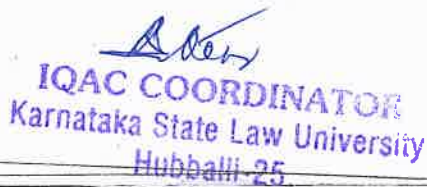 IQAC COORDINATOR
Karnataka State Law University
Hubballi-25